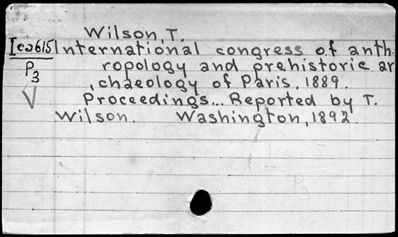 Wilson, T.
Ico615 International congress of anth-
P3 ropology and prehistoric ar
, chaeology of Paris, 1889.
V Proceedings... Reported by T.
Wilson. Washington, 1892.